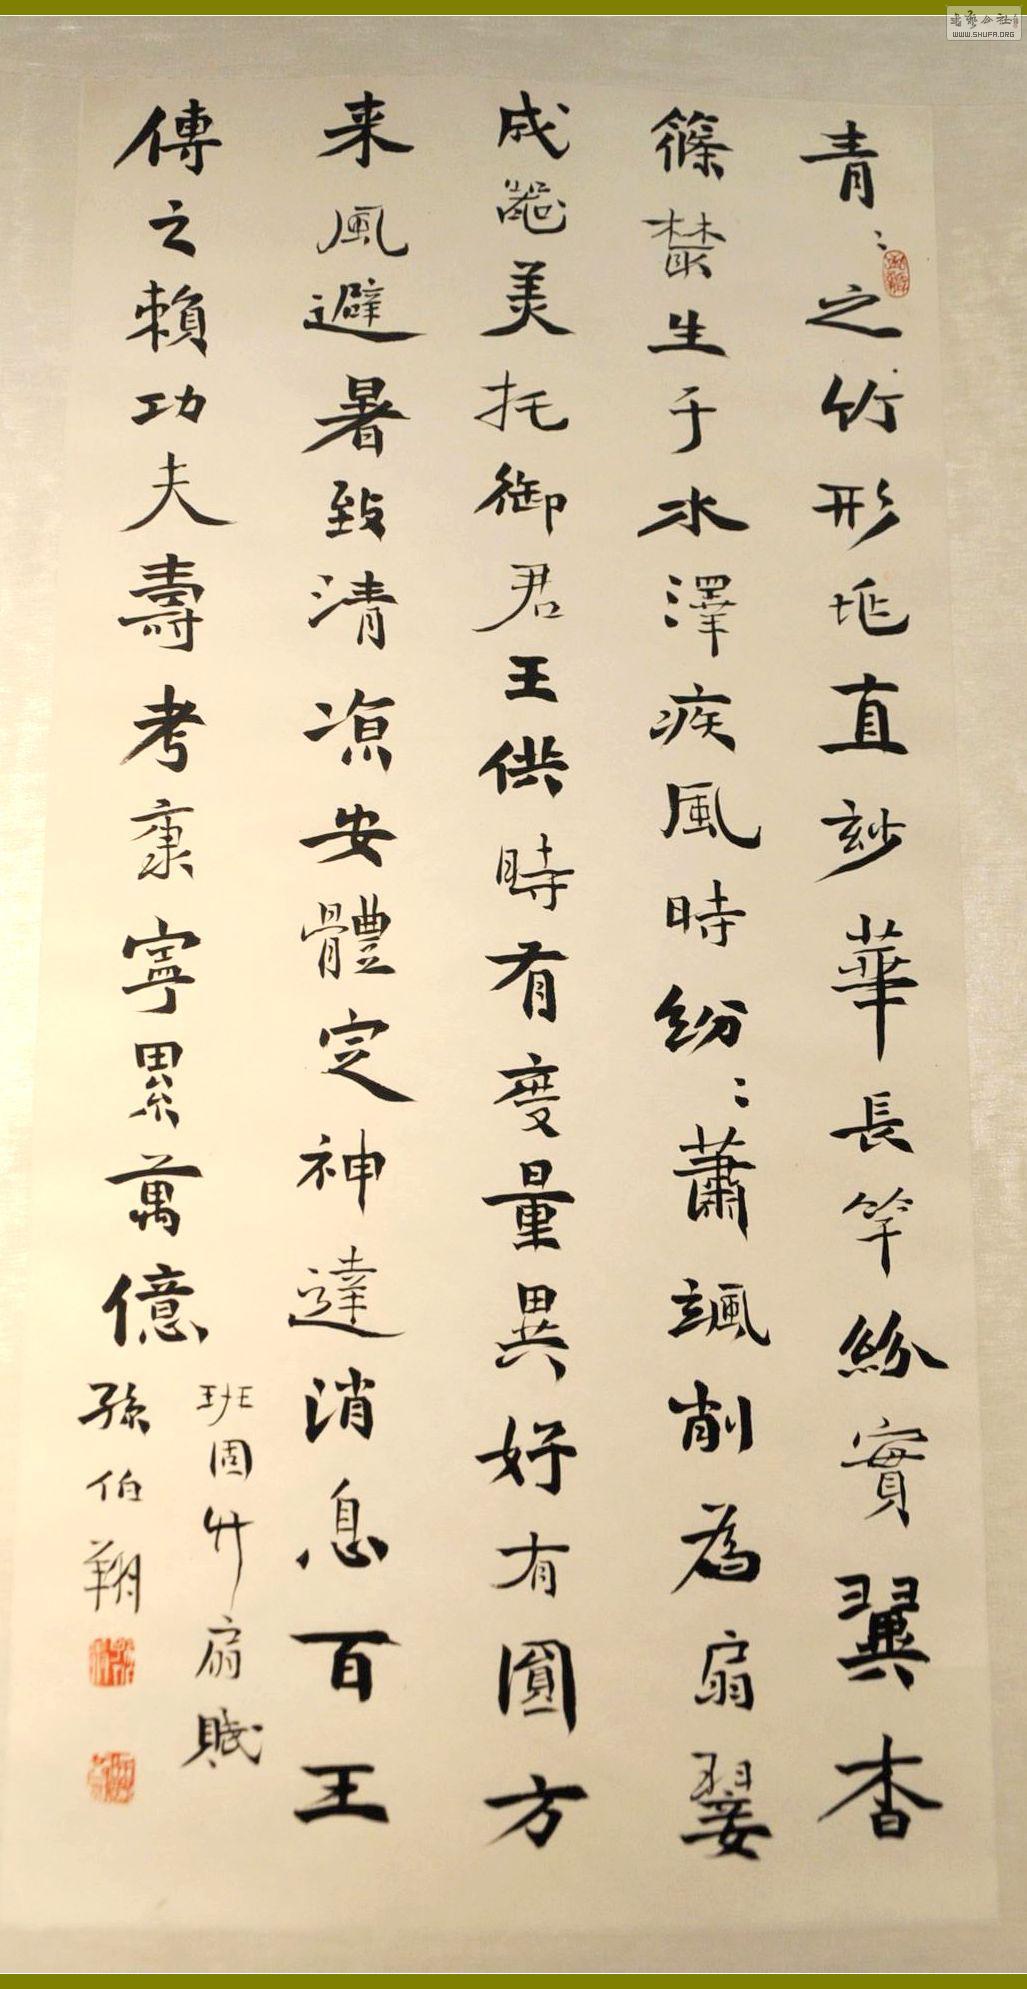 青〻之竹形兆直玅華長竿紛實翼杳
篠叢生于水澤疾風時紛〻蕭颯削為扇翣
成器美托御君王供時有度量異好有圓方
来風避暑致清涼安體定神達消息百王
傳之賴功夫壽考康寧累萬億
班固竹扇賦
孫伯翔
WWW.SHUFA.ORG